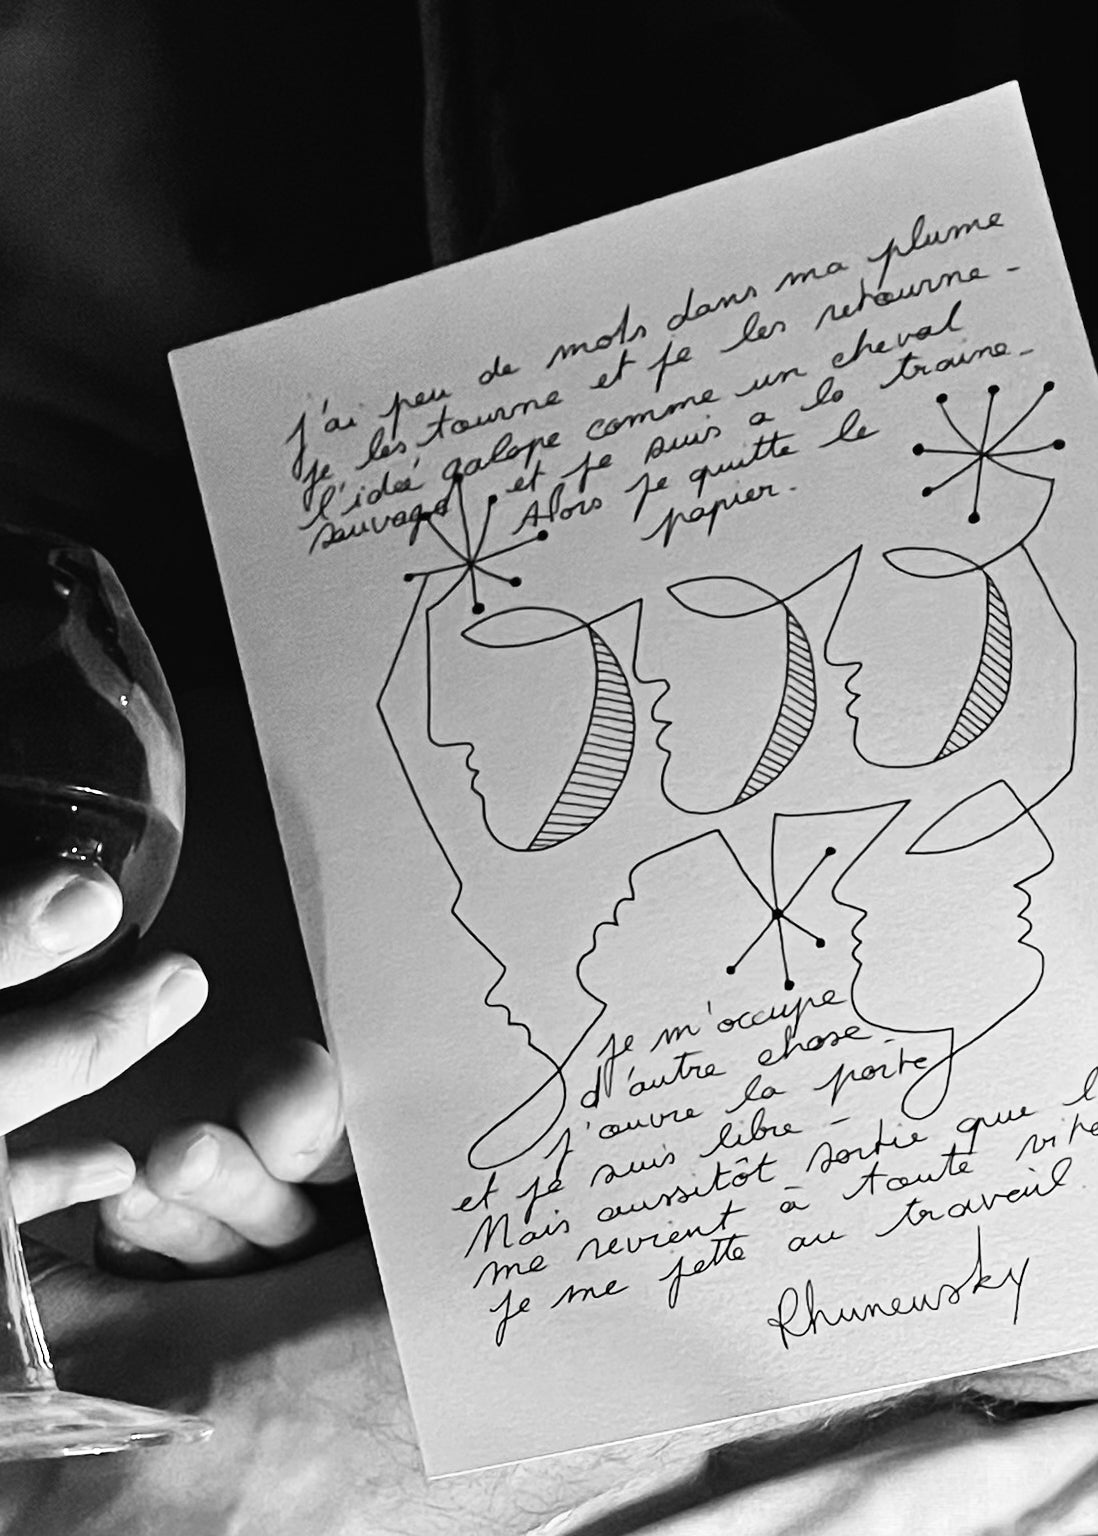 j'ai peu de mots dans ma plume
je les tourne et je les retourne -
l'ideé galope comme un cheval
sauvage et je suis a la traine -
Alors je quitte le
papier.
je m'occupe
d'autre chose.
j'ouvre la porte
et je suis libre -
Mais aussitôt sortie que l
me revient à toute vite
je me jette au travail.
Rhunewsky